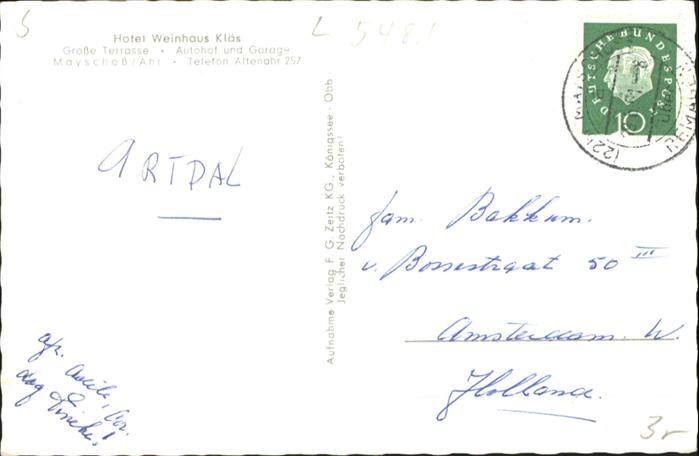 L 548.1
Hotel Weinhaus Kläs
Große Terrasse • Autohof und Garage
Mayschoß/Ahr • Telefon Altenahr 257
DEUTSCHE BUNDESPOST
10
(22
ARTDAL
Aufnahme-Verlag F. G. Zeitz KG., Königssee-Obb
Jeglicher Nachdruck verboten!
fam. Bakkum.
v. Bossestraat 50 III
Amsterdam. W.
Holland.
3r